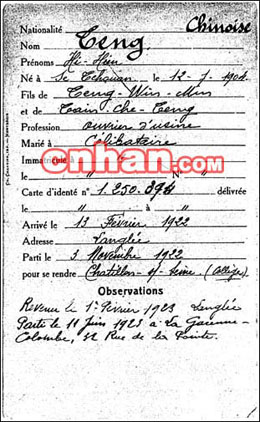 Nationalité Chinoise
Nom Teng
Prénoms Hi-Hien
Né à Se Tchouan le 12-7-1904
Fils de Teng-Win-Min
et de Tain-Che-Teng
Profession ouvrier d'usine
Marié à Célibataire
Immatriculé à
enhan.com
le
Carte d'identé n° 1.250.394 délivrée
le " à "
Arrivé le 13 Février 1922
Adresse Langlée
Parti le 3 Novembre 1922
pour se rendre Chatillon s/ Seine (Collège)
Observations
Revenu le 1er Février 1923 Langlée
Parti le 11 Juin 1923 à La Garenne-
Colombe, 32 Rue de la Pointe.